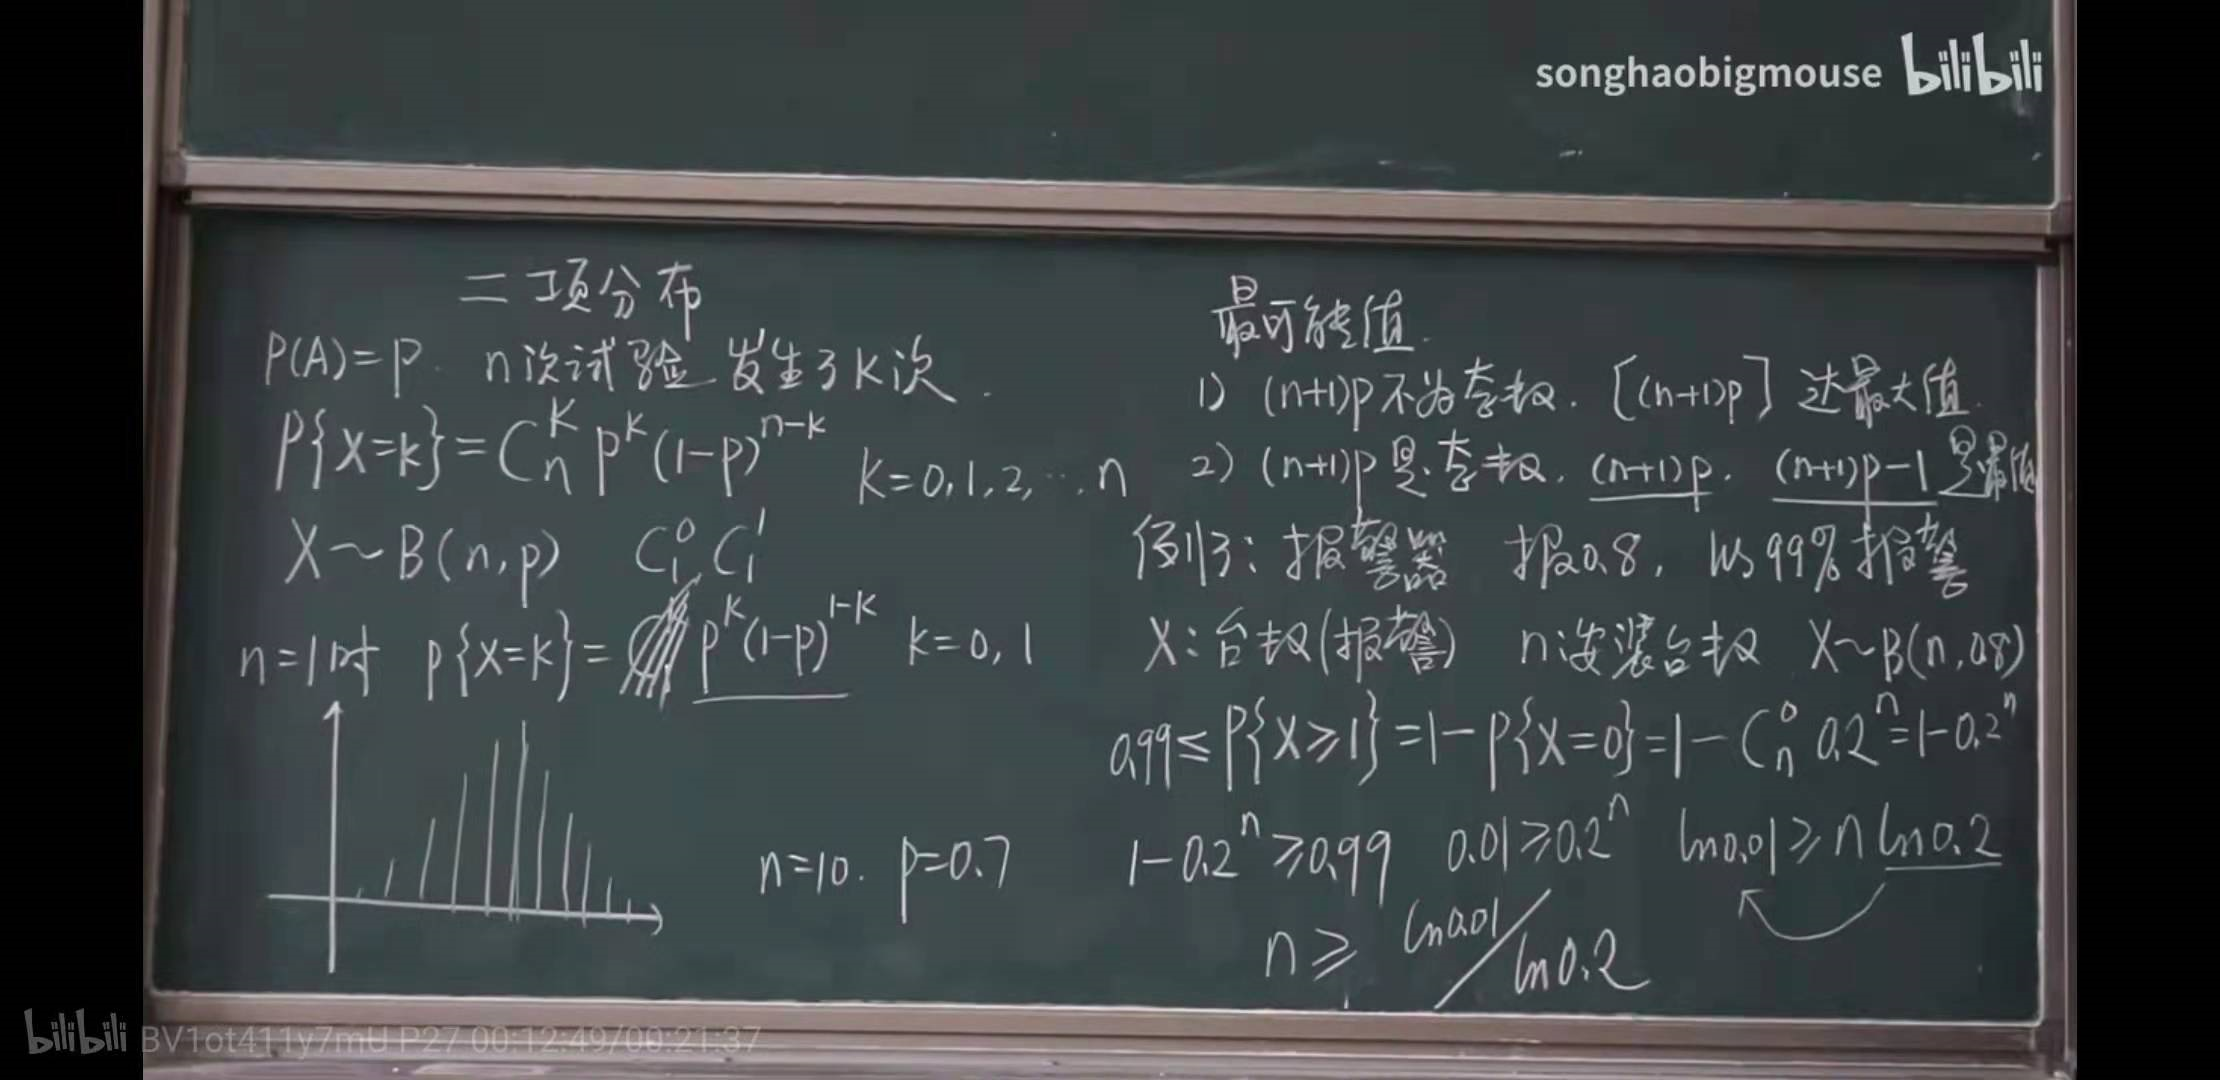 songhaobigmouse bilibili
二项分布
P(A)=p. n次试验 发生了k次.
P{X=k}=C_n^k p^k (1-p)^{n-k} k=0,1,2,…,n
X~B(n,p) C_1^0, C_1^1
n=1时 P{X=k}= p^k(1-p)^{1-k} k=0,1
n=10. p=0.7
最可能值.
1) (n+1)p不为整数. [(n+1)p] 达最大值.
2) (n+1)p是整数. (n+1)p. (n+1)p-1 是最值
例3: 报警器 报0.8, 以99%报警
X:台数(报警) n:安装台数 X~B(n,0.8)
0.99≤P{X≥1}=1-P{X=0}=1-C_n^0 0.2^n=1-0.2^n
1-0.2^n≥0.99 0.01≥0.2^n ln0.01≥n ln0.2
n≥ ln0.01/ln0.2
bilibili BV1ot411y7mU P27 00:12:49/00:21:37